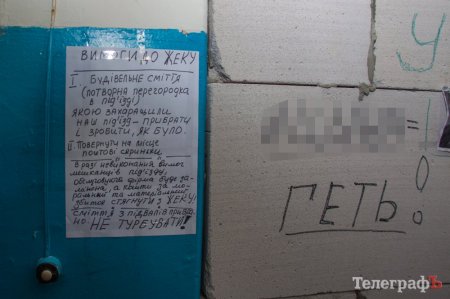 ВИМОГИ ДО ЖЕКУ
I. БУДІВЕЛЬНЕ СМІТТЯ
(ПОТВОРНА ПЕРЕГОРОДКА
В ПІД'ЇЗДІ)
ЯКОЮ ЗАХАРАЩИЛИ
НАШ ПІД'ЇЗД - ПРИБРАТИ
І ЗРОБИТИ, ЯК БУЛО.
II. ПОВЕРНУТИ НА МІСЦЕ
ПОШТОВІ СКРИНЬКИ
В РАЗІ НЕВИКОНАННЯ ВИМОГ
МЕШКАНЦІВ ПІД'ЇЗДУ,
ОБСЛУГОВУЮЧА ФІРМА БУДЕ ЗА-
МІНЕНА, А КОШТИ ЗА МО-
РАЛЬНІ ТА МАТЕРІАЛЬНІ
ЗБИТКИ СТЯГНУТІ З ЖЕКУ!
СМІТТЯ З ПІДВАЛІВ ПРИБРА-
НО. НЕ ТУРБУВАТИ!
У
=
!
ГЕТЬ!
ТелеграфЪ